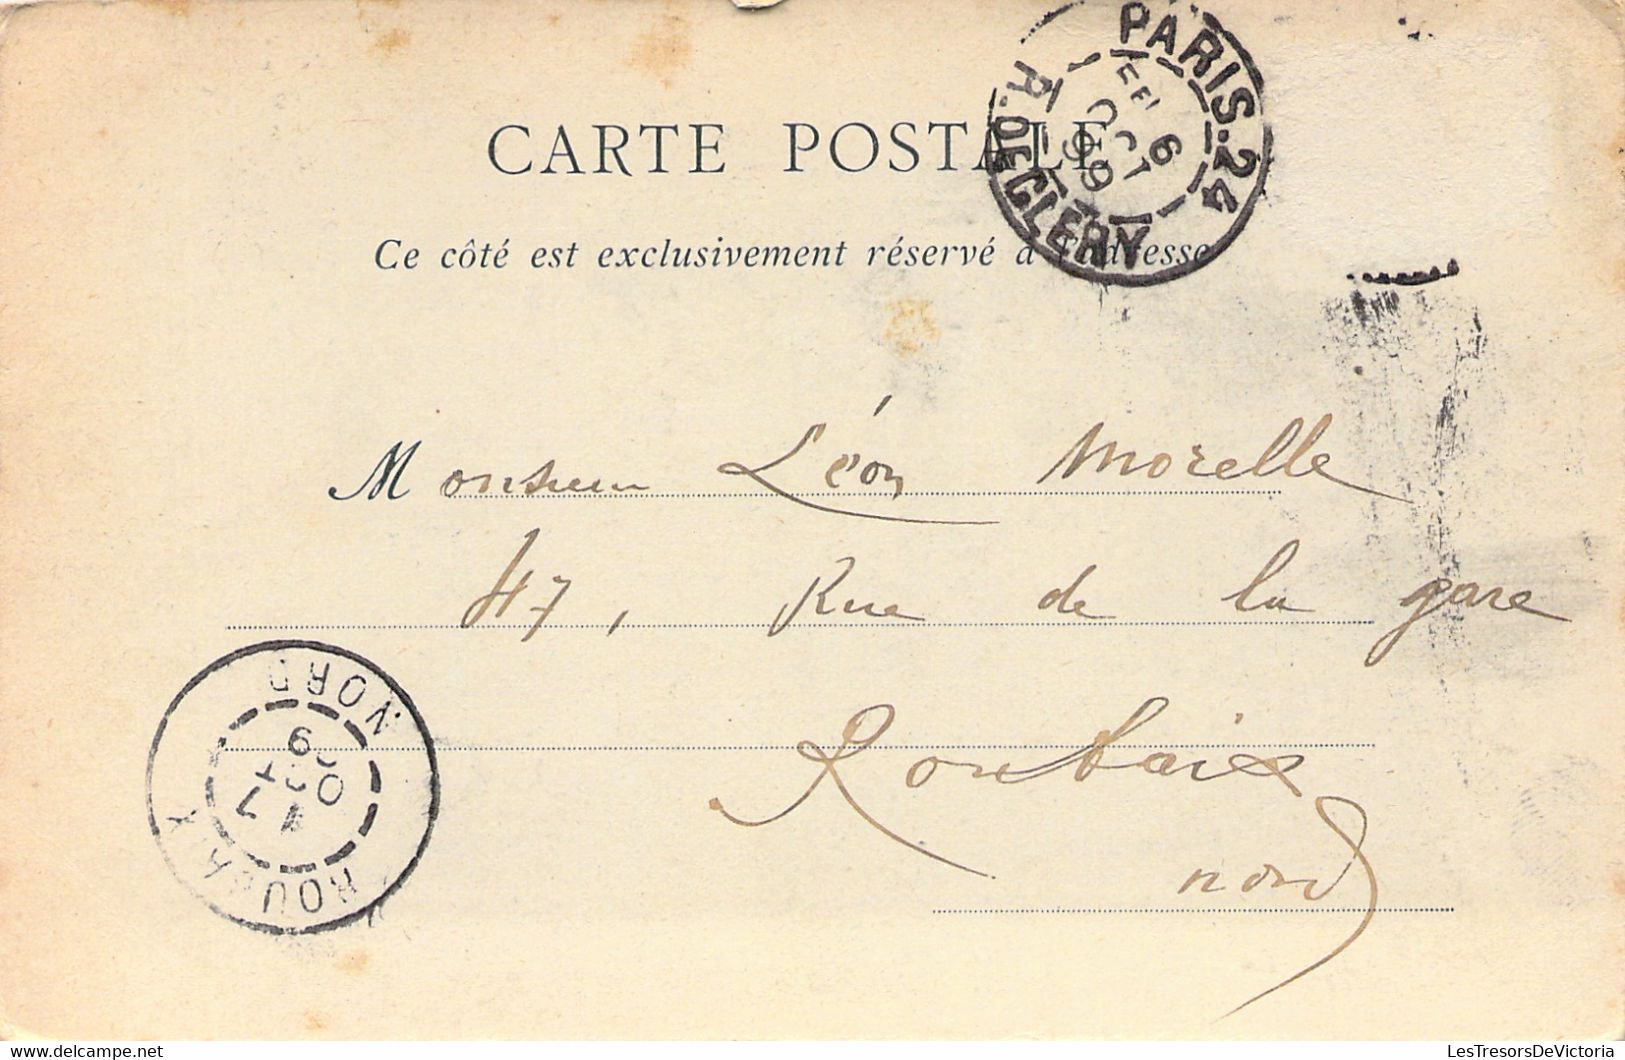 PARIS.24
R. DE CLERY
6
OCT
99
CARTE POSTALE
Ce côté est exclusivement réservé à l'adresse
Monsieur Léon Morelle
47, Rue de la gare
Roubaix
nord
ROUBAIX
NORD
7
OCT
99
LesTresorsDeVictoria